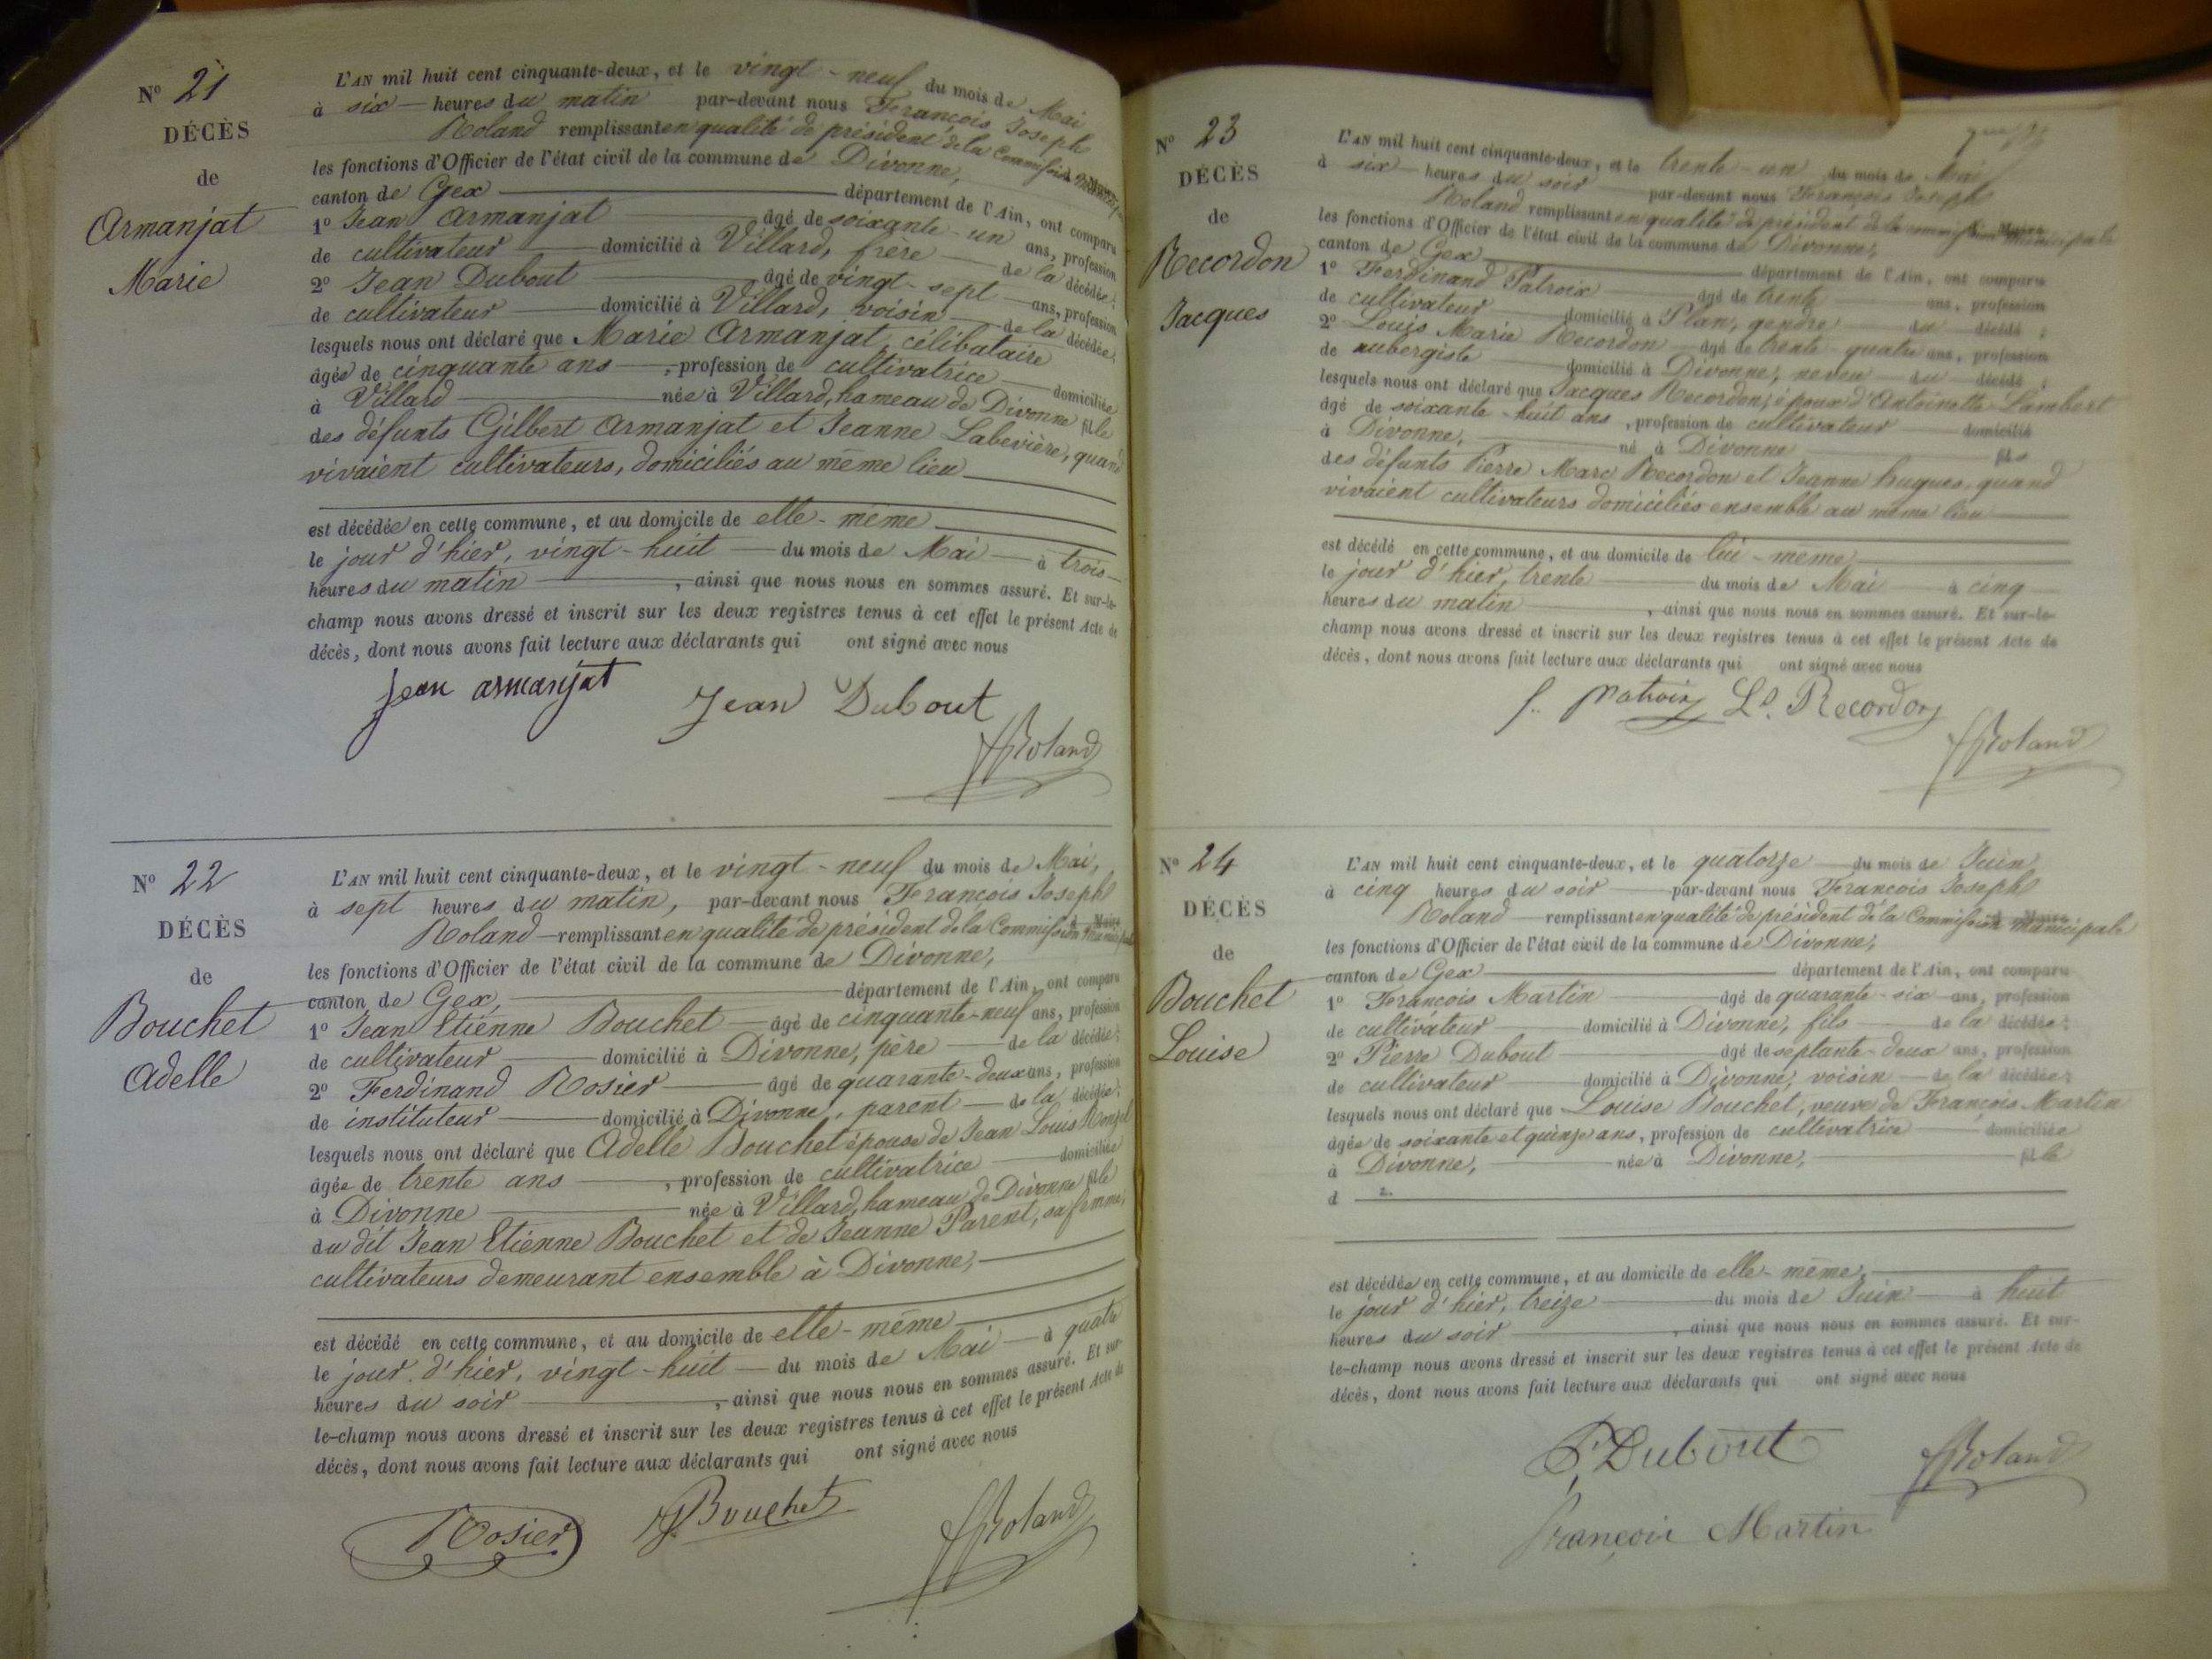 N° 21
DÉCÈS
de
Armanjat
Marie
L'AN mil huit cent cinquante-deux, et le vingt-neuf du mois de Mai
à six heures du matin par-devant nous François Joseph
Roland remplissant en qualité de président de la Commission Municipale
les fonctions d'Officier de l'état civil de la commune de Divonne,
canton de Gex département de l'Ain, ont comparu
1° Jean Armanjat âgé de soixante-un ans, profession
de cultivateur domicilié à Villard, frère de la décédée;
2° Jean Dubout âgé de vingt-sept ans, profession
de cultivateur domicilié à Villard, voisin de la décédée;
lesquels nous ont déclaré que Marie Armanjat, célibataire
âgée de cinquante ans, profession de cultivatrice domiciliée
à Villard née à Villard, hameau de Divonne fille
des défunts Gilbert Armanjat et Jeanne Labevière, quand
vivaient cultivateurs, domiciliés au même lieu
est décédée en cette commune, et au domicile de elle-même
le jour d'hier, vingt-huit du mois de Mai à trois
heures du matin, ainsi que nous nous en sommes assuré. Et sur-le-
champ nous avons dressé et inscrit sur les deux registres tenus à cet effet le présent Acte de
décès, dont nous avons fait lecture aux déclarants qui ont signé avec nous
Jean armanjat Jean Dubout
Roland
N° 22
DÉCÈS
de
Bouchet
Adelle
L'AN mil huit cent cinquante-deux, et le vingt-neuf du mois de Mai,
à sept heures du matin, par-devant nous François Joseph
Roland remplissant en qualité de président de la Commission Municipale
les fonctions d'Officier de l'état civil de la commune de Divonne,
canton de Gex, département de l'Ain, ont comparu
1° Jean Etienne Bouchet âgé de cinquante-neuf ans, profession
de cultivateur domicilié à Divonne, père de la décédée;
2° Ferdinand Rosier âgé de quarante-deux ans, profession
de instituteur domicilié à Divonne, parent de la décédée;
lesquels nous ont déclaré que Adelle Bouchet épouse de Jean Louis
âgée de trente ans, profession de cultivatrice domiciliée
à Divonne née à Villard, hameau de Divonne fille
du dit Jean Etienne Bouchet et de Jeanne Parent, sa femme,
cultivateurs demeurant ensemble à Divonne,
est décédé en cette commune, et au domicile de elle-même
le jour d'hier, vingt-huit du mois de Mai à quatre
heures du soir, ainsi que nous nous en sommes assuré. Et sur-
le-champ nous avons dressé et inscrit sur les deux registres tenus à cet effet le présent Acte de
décès, dont nous avons fait lecture aux déclarants qui ont signé avec nous
Rosier Bouchet
Roland
N° 23
DÉCÈS
de
Recordon
Jacques
L'AN mil huit cent cinquante-deux, et le trente-un du mois de Mai
à six heures du soir par-devant nous François Joseph
Roland remplissant en qualité de président de la commission municipale
les fonctions d'Officier de l'état civil de la commune de Divonne,
canton de Gex département de l'Ain, ont comparu
1° Ferdinand Patroix âgé de trente ans, profession
de cultivateur domicilié à Plan, gendre du décédé;
2° Louis Marie Recordon âgé de trente-quatre ans, profession
de aubergiste domicilié à Divonne, neveu du décédé;
lesquels nous ont déclaré que Jacques Recordon, époux d'Antoinette Lambert
âgé de soixante-huit ans, profession de cultivateur domicilié
à Divonne, né à Divonne fils
des défunts Pierre Marc Recordon et Jeanne hugues, quand
vivaient cultivateurs domiciliés ensemble au même lieu
est décédé en cette commune, et au domicile de lui-même
le jour d'hier, trente du mois de Mai à cinq
heures du matin, ainsi que nous nous en sommes assuré. Et sur-le-
champ nous avons dressé et inscrit sur les deux registres tenus à cet effet le présent Acte de
décès, dont nous avons fait lecture aux déclarants qui ont signé avec nous
f. patroix Ls. Recordon
Roland
N° 24
DÉCÈS
de
Bouchet
Louise
L'AN mil huit cent cinquante-deux, et le quatorze du mois de Juin
à cinq heures du soir par-devant nous François Joseph
Roland remplissant en qualité de président de la Commission Municipale
les fonctions d'Officier de l'état civil de la commune de Divonne,
canton de Gex département de l'Ain, ont comparu
1° François Martin âgé de quarante-six ans, profession
de cultivateur domicilié à Divonne, fils de la décédée;
2° Pierre Dubout âgé de septante-deux ans, profession
de cultivateur domicilié à Divonne, voisin de la décédée;
lesquels nous ont déclaré que Louise Bouchet, veuve de François Martin
âgée de soixante et quinze ans, profession de cultivatrice domiciliée
à Divonne, née à Divonne, fille
d
est décédée en cette commune, et au domicile de elle-même,
le jour d'hier, treize du mois de Juin à huit
heures du soir, ainsi que nous nous en sommes assuré. Et sur-
le-champ nous avons dressé et inscrit sur les deux registres tenus à cet effet le présent Acte de
décès, dont nous avons fait lecture aux déclarants qui ont signé avec nous
P. Dubout Roland
françois Martin